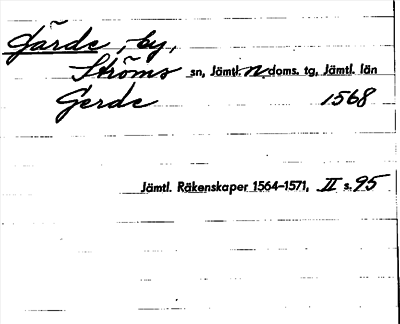 Gärde, by,
Ströms sn, Jämtl. N. doms. tg, Jämtl. län
Gerde 1568
Jämtl. Räkenskaper 1564–1571, II s. 95